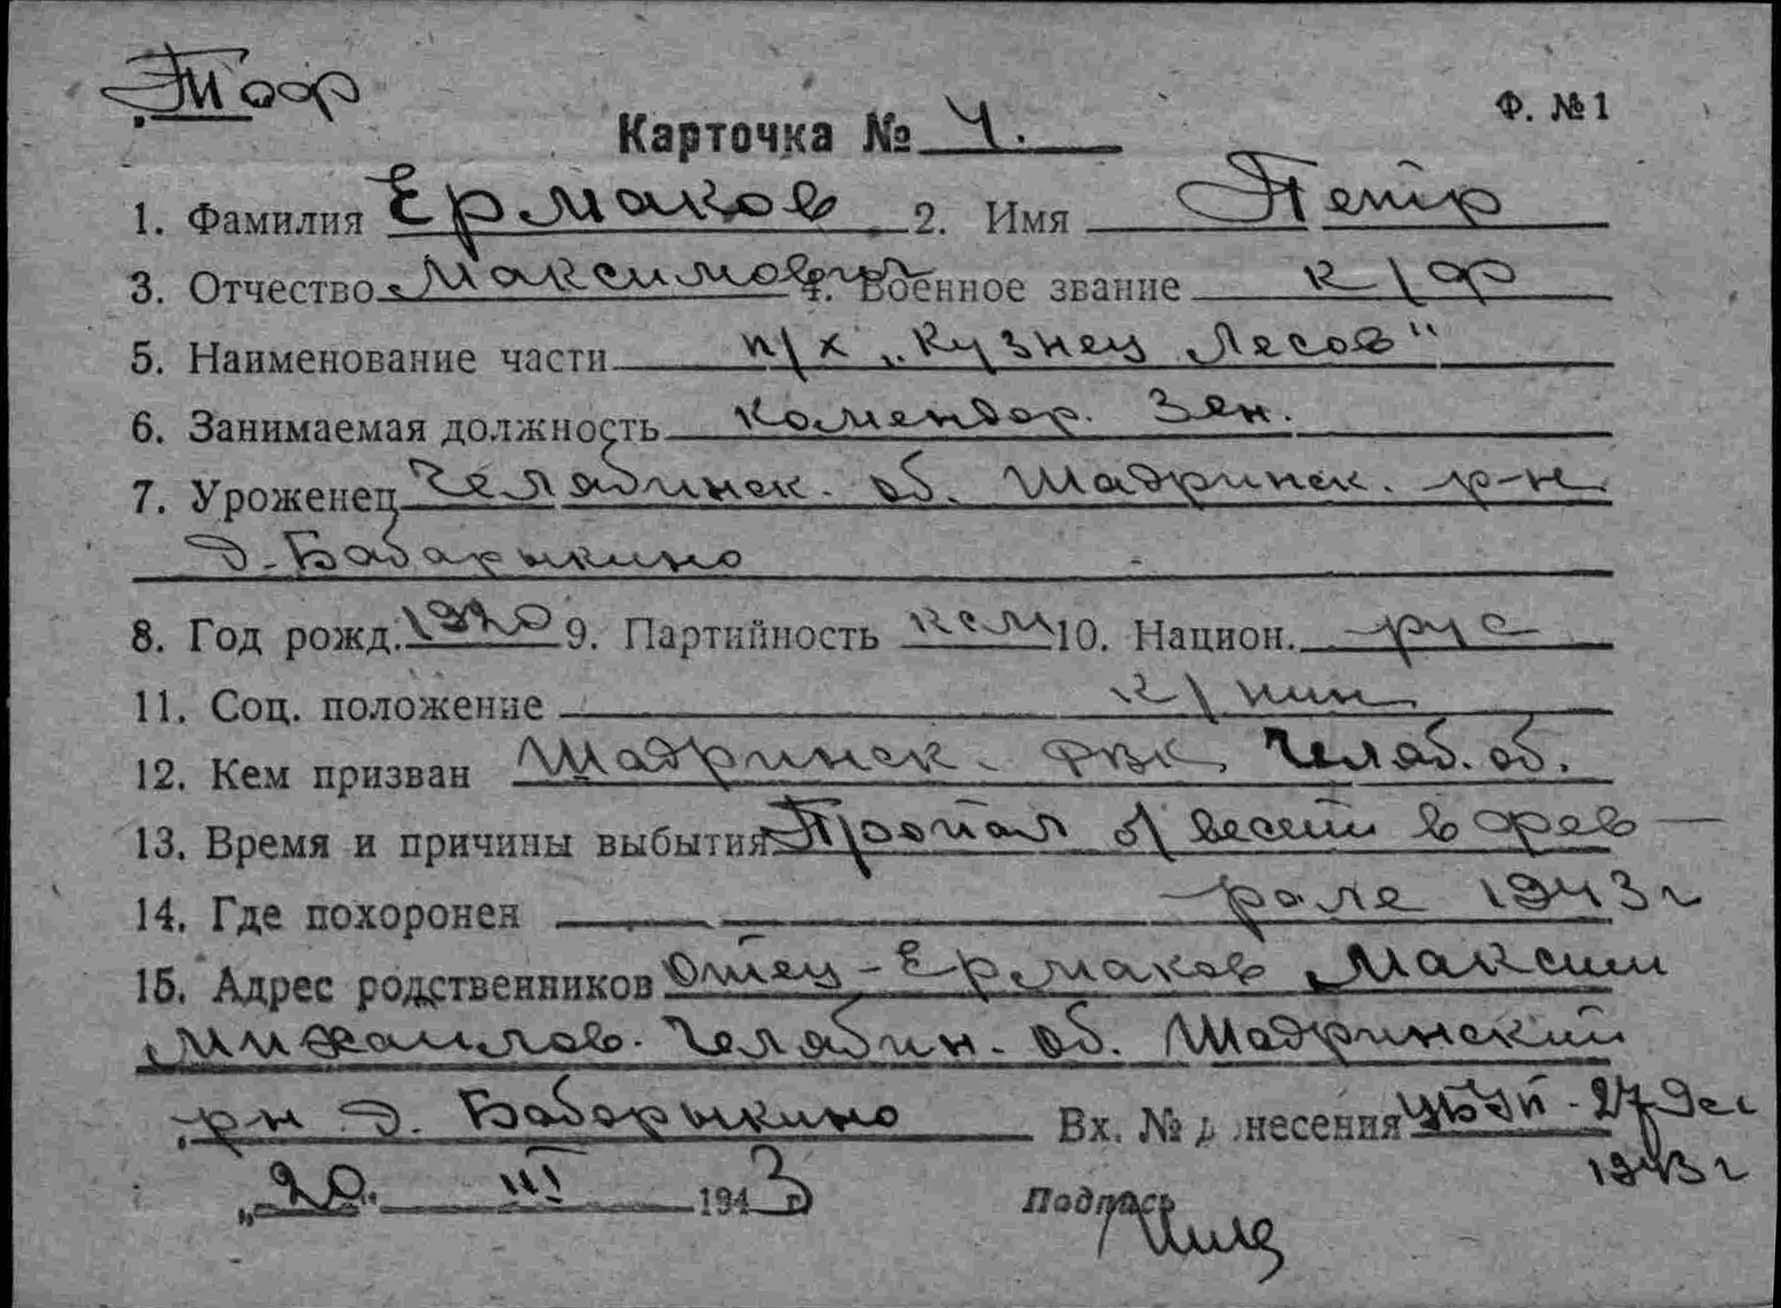 Тоф
Ф. №1
Карточка № 4.
1. Фамилия Ермаков 2. Имя Петр
3. Отчество Максимович 4. Военное звание к/ф
5. Наименование части п/х „Кузнец Лесов"
6. Занимаемая должность комендор. Зен.
7. Уроженец Челябинск. об. Шадринск. р-н.
д. Бабарыкино
8. Год рожд. 1920 9. Партийность ксм 10. Национ. рус
11. Соц. положение к/нин
12. Кем призван Шадринск. РВК, Челяб. об.
13. Время и причины выбытия Пропал б/вести в фев
14. Где похоронен рале 1943 г
15. Адрес родственников Отец - Ермаков Максим
Михайлов. Челябин. об. Шадринский
рн д. Бабарыкино Вх. № донесения 27 дек
1943 г
„20" III 1943 г.
Подпись